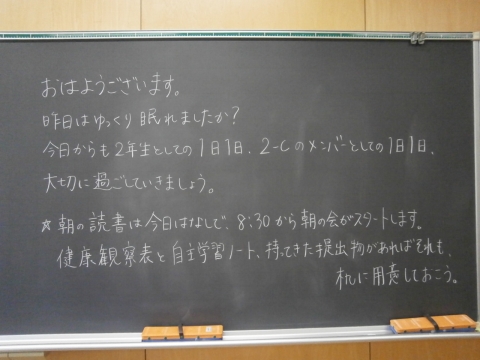 おはようございます。
昨日はゆっくり眠れましたか？
今日からも2年生としての1日1日、2-Cのメンバーとしての1日1日、
大切に過ごしていきましょう。
☆朝の読書は今日はなしで、8:30から朝の会がスタートします。
健康観察表と自主学習ノート、持ってきた提出物があればそれも、
机に用意しておこう。